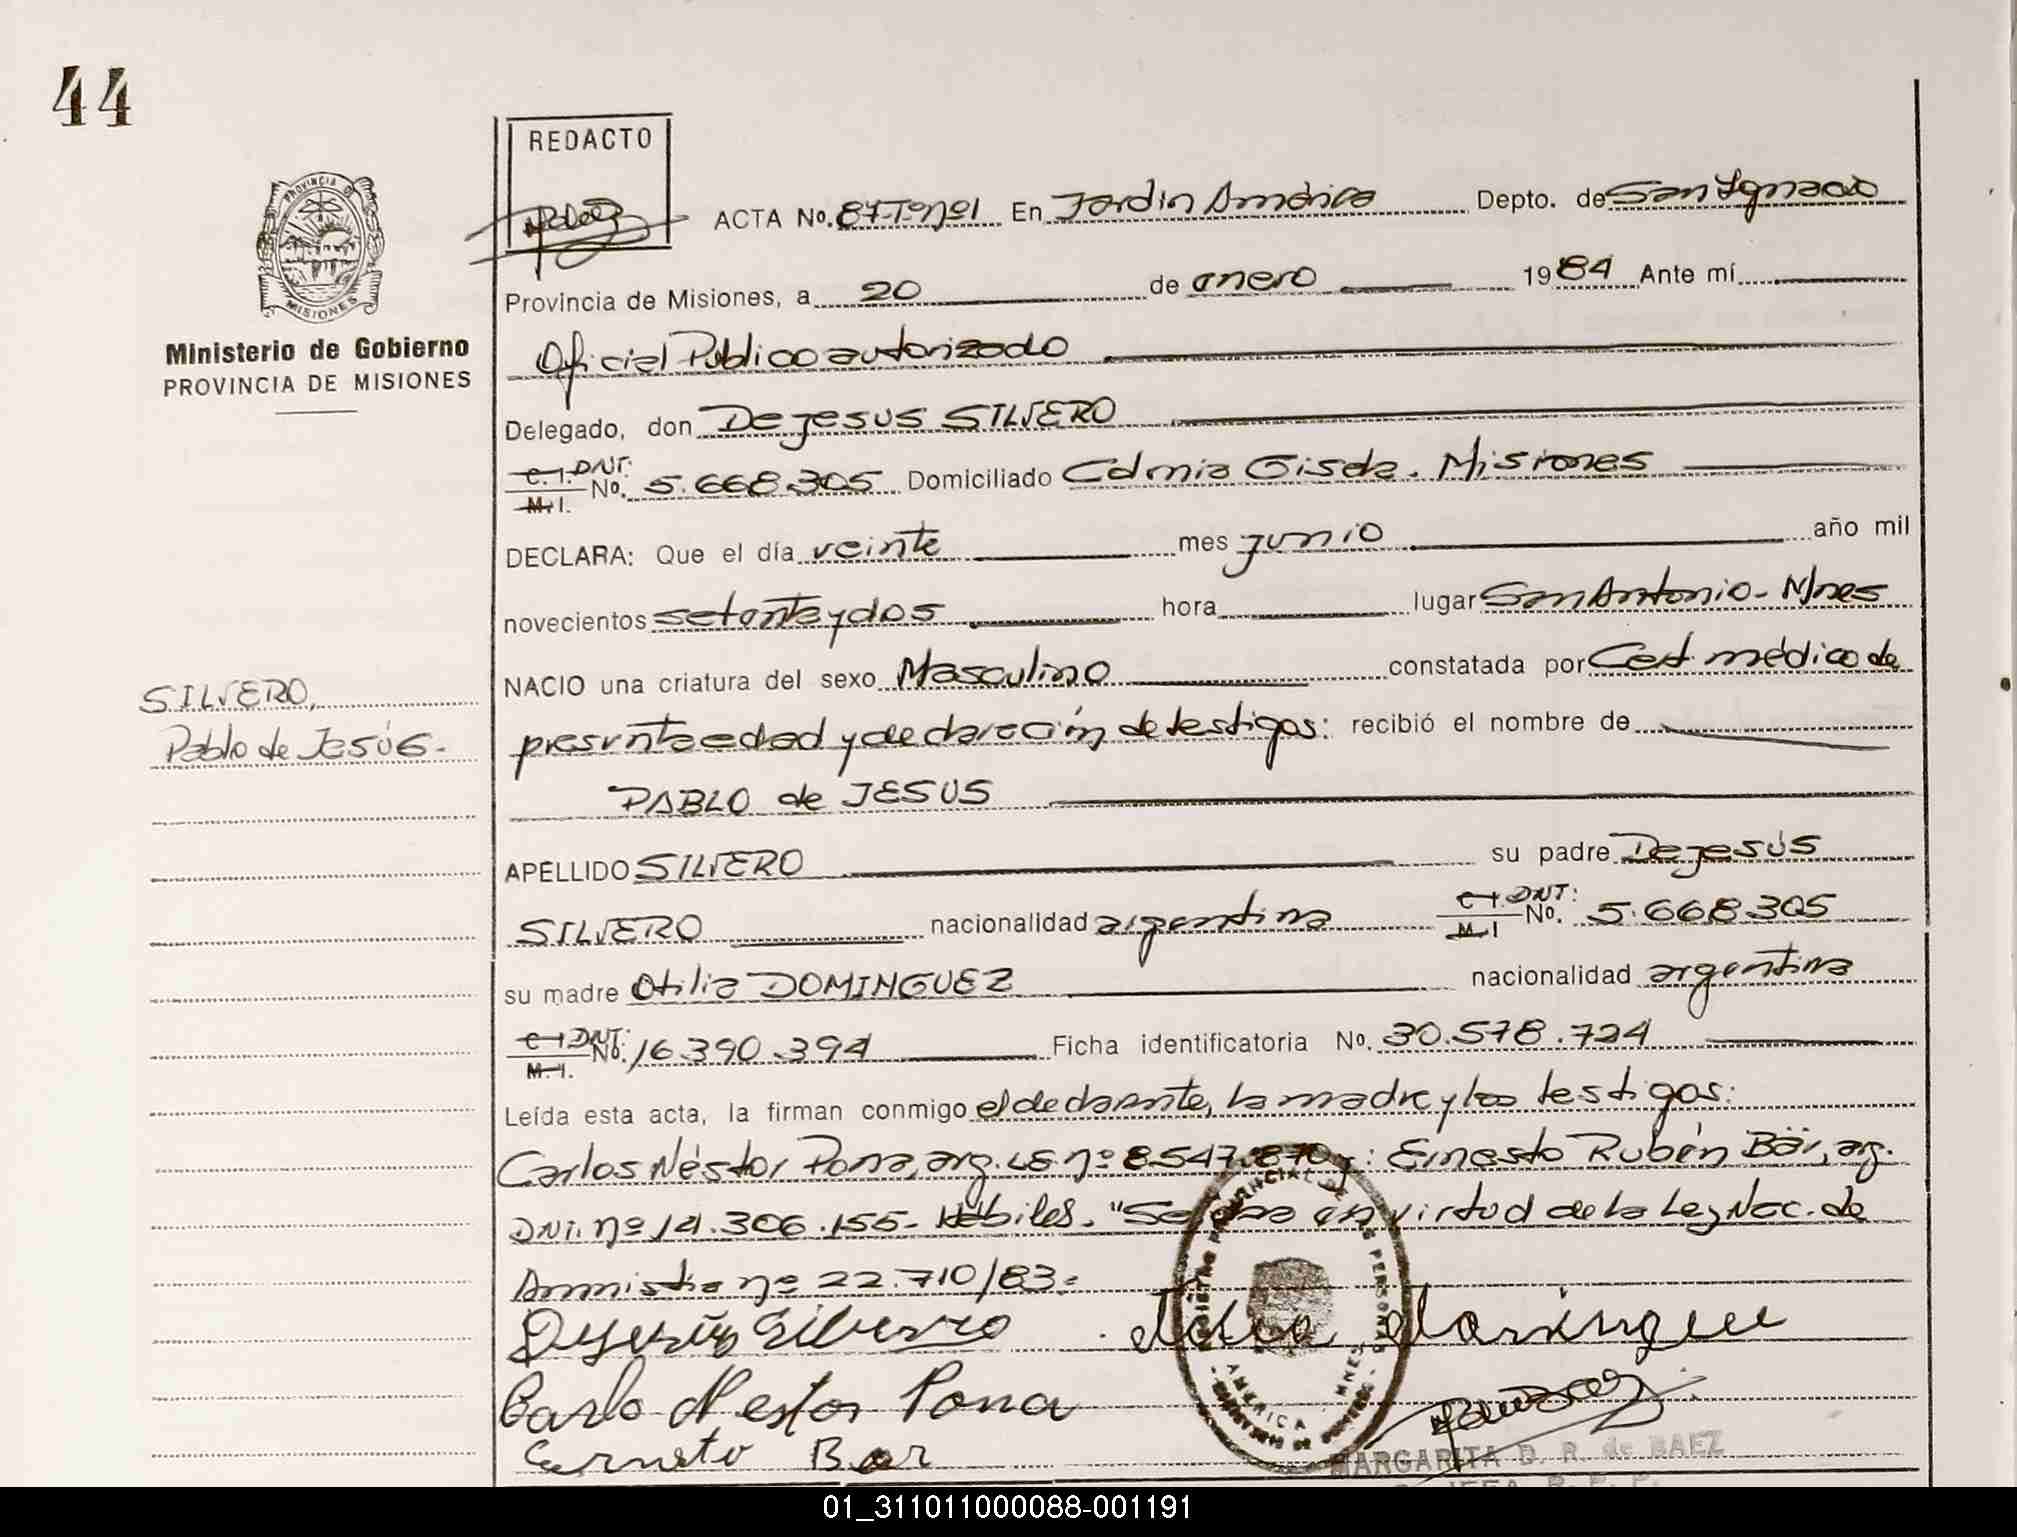 44
REDACTO
PROVINCIA DE
MISIONES
Ministerio de Gobierno
PROVINCIA DE MISIONES
ACTA No. 87-Tºnº1 En Jardin América Depto. de San Ignacio
Provincia de Misiones, a 20 de enero 1984 Ante mí
Oficial Publico autorizado
Delegado, don De jesus SILVERO
C.I. DNI: M.I. No. 5.668.305 Domiciliado Colonia Gisela. Misiones
DECLARA: Que el día veinte mes junio año mil
novecientos setenta y dos hora lugar San Antonio- Mnes
NACIO una criatura del sexo Masculino constatada por Cert. médico de
presunta edad y declaración de testigos: recibió el nombre de
PABLO de JESUS
SILVERO,
Pablo de Jesús.-
APELLIDO SILVERO su padre De jesús
SILVERO nacionalidad argentina C.I DNI: M.I No. 5.668.305
su madre Otilia DOMINGUEZ nacionalidad argentina
C.I DNI: M.I. No. 16.390.394 Ficha identificatoria No. 30.578.724
Leída esta acta, la firman conmigo el declarante, la madre y los testigos:
Carlos Néstor Pona, arg. LE. nº 8.547.870 y: Ernesto Rubén Bär, arg.
DNI. nº 14.306.155- Hábiles. "Se labra en virtud de la Ley Nac. de
Amnistia nº 22.710/83.=
Dejesús Silvero Otilia Dominguez
Carlo Nestor Pona
Erneto Bar
REGISTRO PROVINCIAL DE LAS PERSONAS
AMERICA - MNES
MARGARITA D. R. de BAEZ
JEFA R. P. P.
01_311011000088-001191